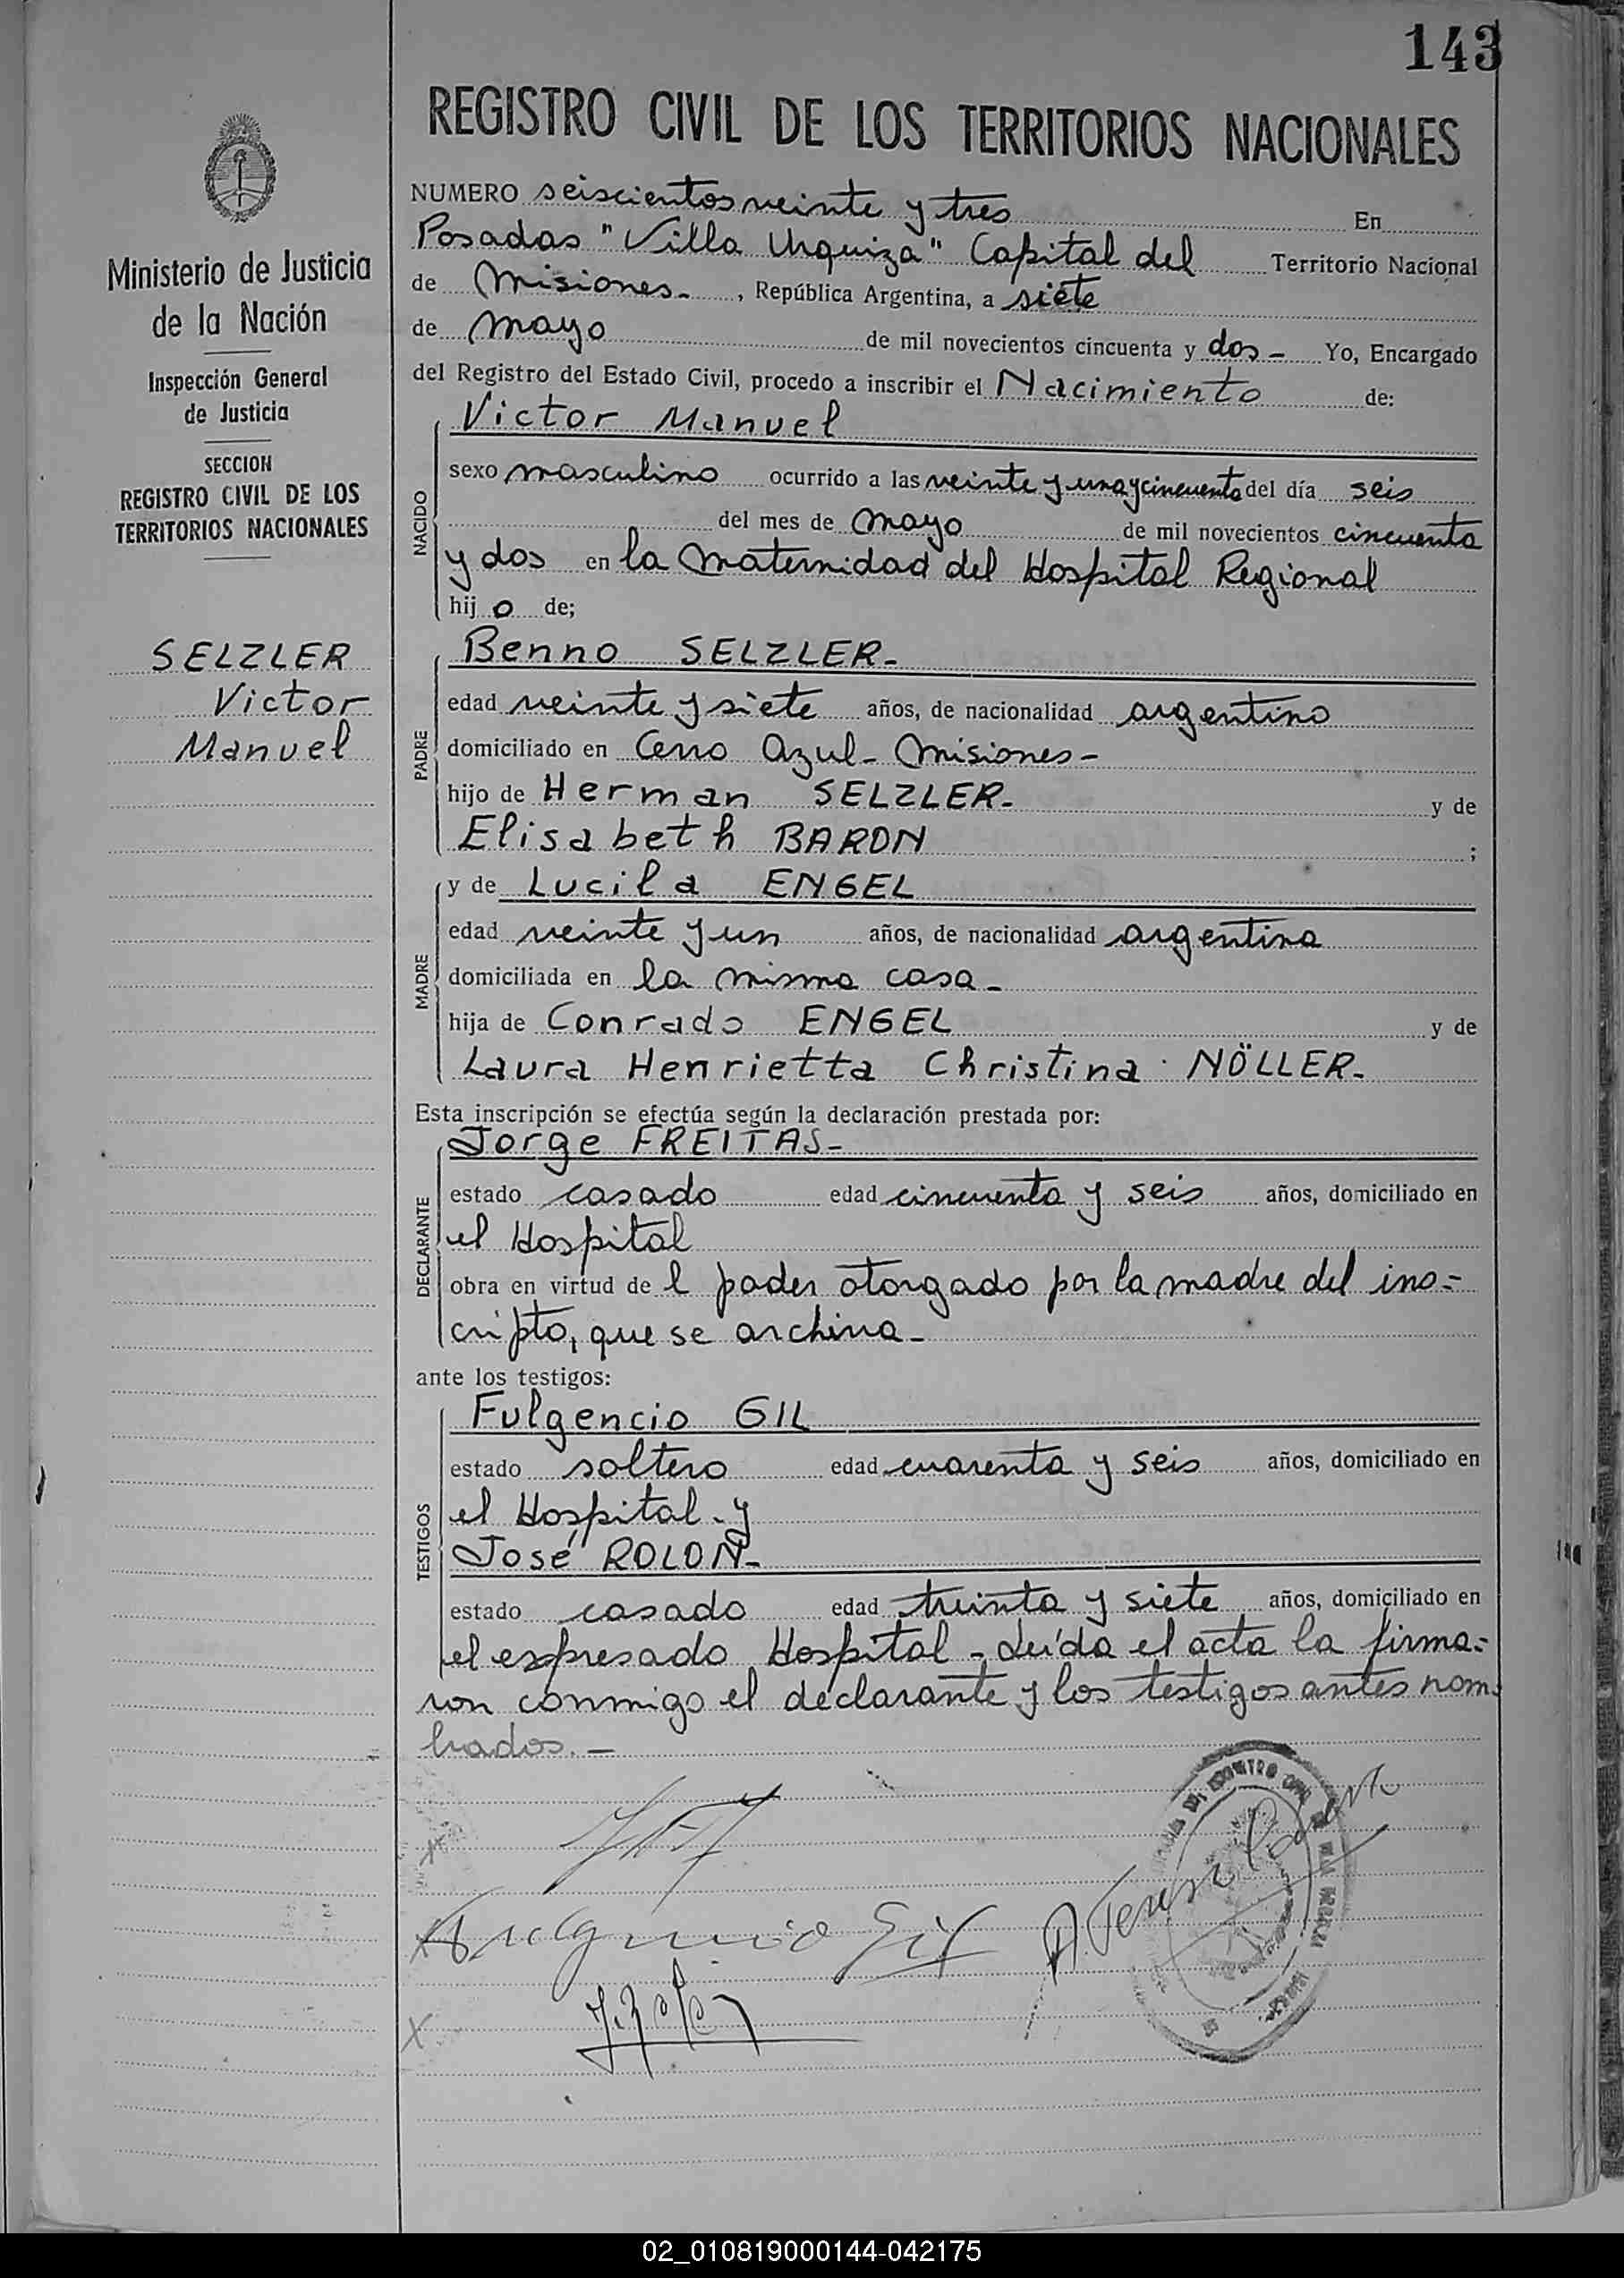 143
REGISTRO CIVIL DE LOS TERRITORIOS NACIONALES
Ministerio de Justicia
de la Nación
Inspección General
de Justicia
SECCION
REGISTRO CIVIL DE LOS
TERRITORIOS NACIONALES
SELZLER
Victor
Manuel
NUMERO seiscientos veinte y tres En
Posadas "Villa Urquiza" Capital del Territorio Nacional
de Misiones-, República Argentina, a siete
de mayo de mil novecientos cincuenta y dos- Yo, Encargado
del Registro del Estado Civil, procedo a inscribir el Nacimiento de:
NACIDO
Victor Manuel
sexo masculino ocurrido a las veinte y una y cincuenta del día seis
del mes de mayo de mil novecientos cincuenta
y dos en la Maternidad del Hospital Regional
hij o de;
PADRE
Benno SELZLER-
edad veinte y siete años, de nacionalidad argentino
domiciliado en Cerro Azul- Misiones-
hijo de Herman SELZLER- y de
Elisabeth BARON ;
MADRE
y de Lucila ENGEL
edad veinte y un años, de nacionalidad argentina
domiciliada en la misma casa-
hija de Conrado ENGEL y de
Laura Henrietta Christina NÖLLER-
Esta inscripción se efectúa según la declaración prestada por:
DECLARANTE
Jorge FREITAS-
estado casado edad cincuenta y seis años, domiciliado en
el Hospital
obra en virtud de l poder otorgado por la madre del ins-
cripto, que se archiva-
ante los testigos:
TESTIGOS
Fulgencio GIL
estado soltero edad cuarenta y seis años, domiciliado en
el Hospital-y
José ROLON-
estado casado edad treinta y siete años, domiciliado en
el expresado Hospital-Leída el acta la firma-
ron conmigo el declarante y los testigos antes nom-
brados.-
Fulgencio Gil
J. Rolon
02_010819000144-042175